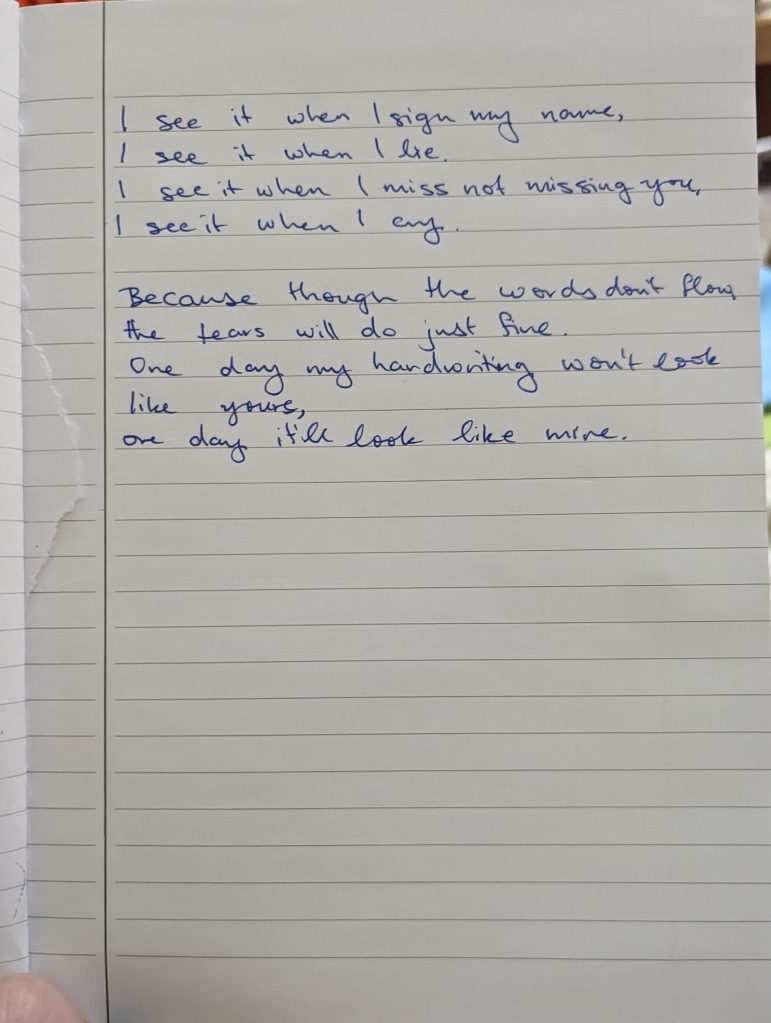 I see it when I sign my name,
I see it when I lie.
I see it when I miss not missing you,
I see it when I cry.
Because though the words don't flow,
the tears will do just fine.
One day my handwriting won't look
like yours,
one day it'll look like mine.